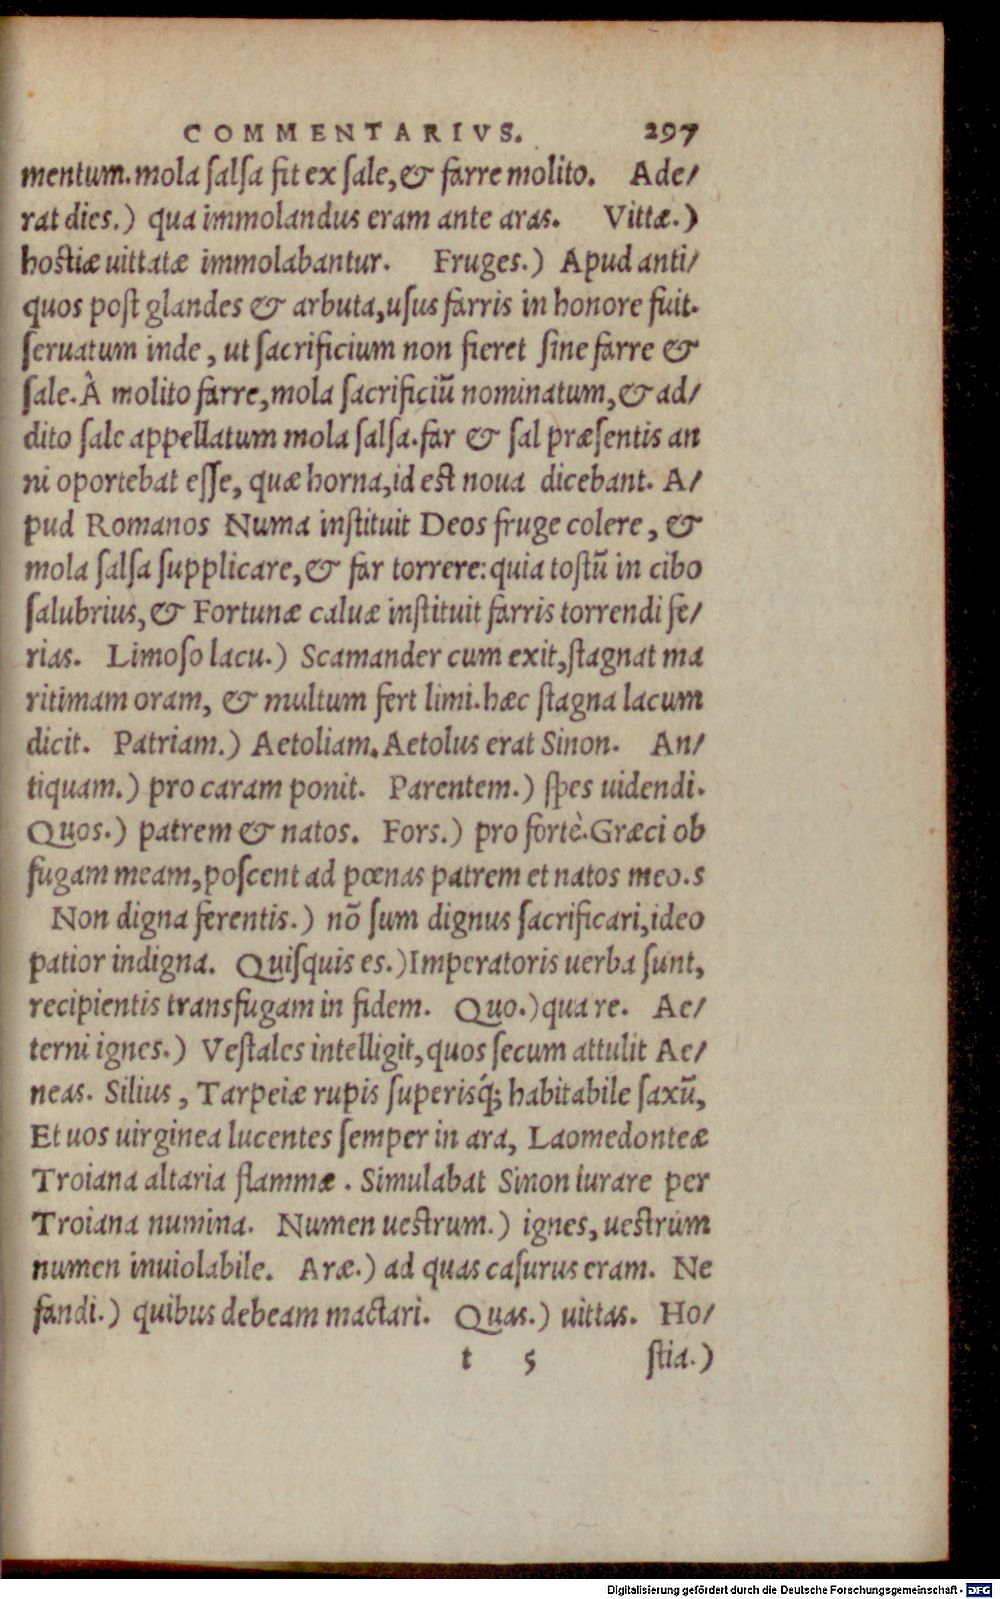 COMMENTARIVS. 297
mentum. mola ſalſa fit ex ſale, & farre molito. Ade/
rat dies.) qua immolandus eram ante aras. Vittæ.)
hostiæ uittatæ immolabantur. Fruges.) Apud anti/
quos poſt glandes & arbuta, uſus farris in honore fuit.
ſeruatum inde, ut ſacrificium non fieret ſine farre &
ſale. À molito farre, mola ſacrificiū nominatum, & ad/
dito ſale appellatum mola ſalſa. far & ſal præſentis an
ni oportebat eſſe, quæ horna, id est noua dicebant. A/
pud Romanos Numa inſtituit Deos fruge colere, &
mola ſalſa ſupplicare, & far torrere: quia toſtū in cibo
ſalubrius, & Fortunæ caluæ inſtituit farris torrendi fe/
rias. Limoſo lacu.) Scamander cum exit, ſtagnat ma
ritimam oram, & multum fert limi. hæc ſtagna lacum
dicit. Patriam.) Aetoliam. Aetolus erat Sinon. An/
tiquam.) pro caram ponit. Parentem.) ſpes uidendi.
Quos.) patrem & natos. Fors.) pro fortè. Græci ob
fugam meam, poſcent ad pœnas patrem et natos meo.s
Non digna ferentis.) nō ſum dignus ſacrificari, ideo
patior indigna. Quiſquis es.) Imperatoris uerba ſunt,
recipientis transfugam in fidem. Quo.) qua re. Ae/
terni ignes.) Veſtales intelligit, quos ſecum attulit Ae/
neas. Silius, Tarpeiæ rupis ſuperisq́; habitabile ſaxū,
Et uos uirginea lucentes ſemper in ara, Laomedonteæ
Troiana altaria flammæ. Simulabat Sinon iurare per
Troiana numina. Numen uestrum.) ignes, uestrum
numen inuiolabile. Aræ.) ad quas caſurus eram. Ne
fandi.) quibus debeam mactari. Quas.) uittas. Ho/
t 5 ſtia.)
Digitalisierung gefördert durch die Deutsche Forschungsgemeinschaft - DFG